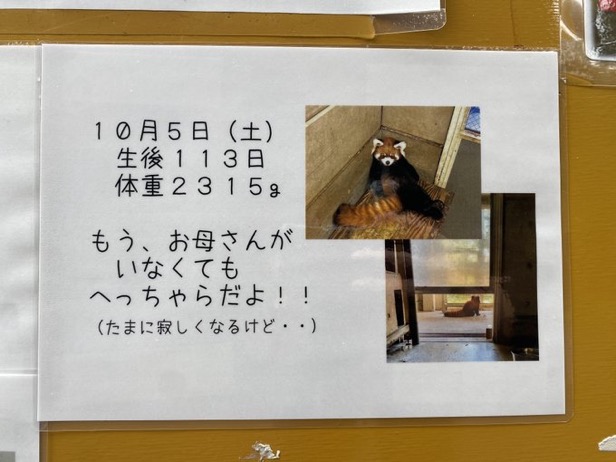 １０月５日（土）
生後１１３日
体重２３１５g
もう、お母さんが
いなくても
へっちゃらだよ！！
（たまに寂しくなるけど・・）